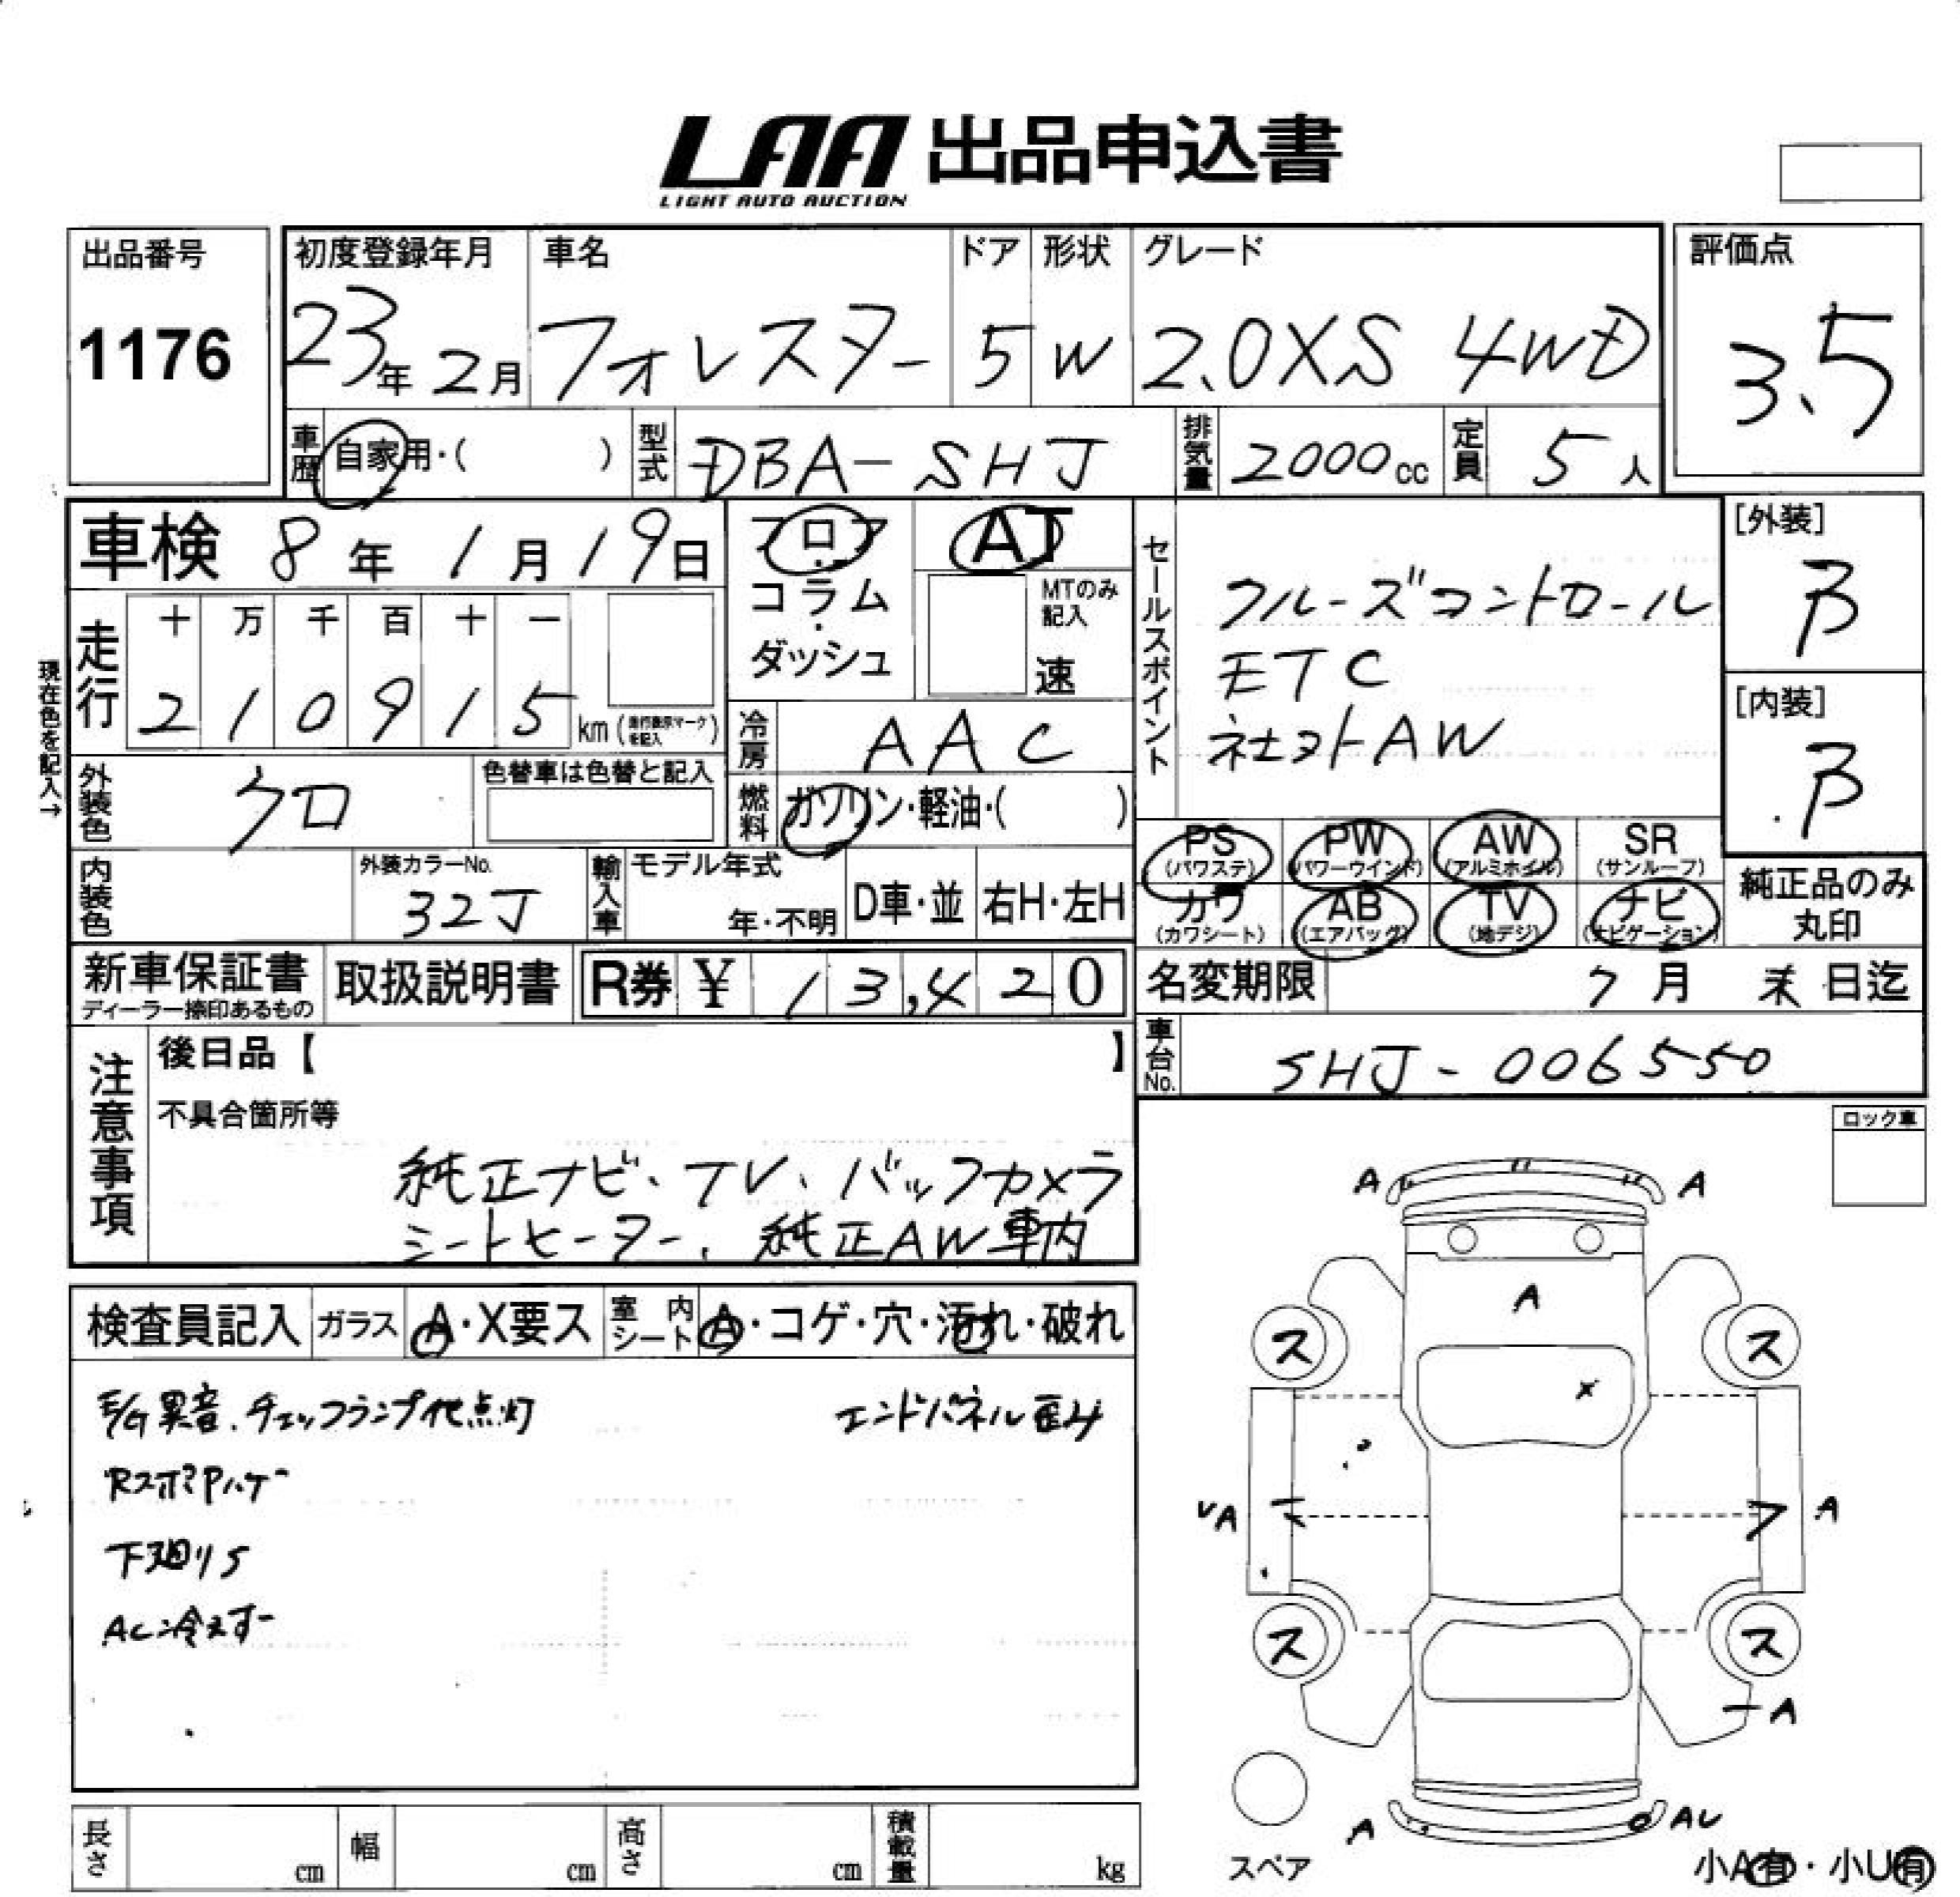 LAA 出品申込書
LIGHT AUTO AUCTION
出品番号
1176
初度登録年月
23年 2月
車名
フォレスター
ドア
5
形状
W
グレード
2.0XS 4WD
評価点
3.5
車歴
自家用・( )
型式
DBA-SHJ
排気量
2000cc
定員
5人
車検 8年 1月 19日
フロア
コラム
ダッシュ
AT
MTのみ記入
速
セールスポイント
クルーズコントロール
ETC
社外AW
[外装]
B
[内装]
B
現在色を記入→
走行
十 万 千 百 十 一
2 1 0 9 1 5 km
冷房
AAC
外装色
クロ
色替車は色替と記入
燃料
ガソリン・軽油・( )
PS (パワステ)
PW (パワーウインド)
AW (アルミホイル)
SR (サンルーフ)
カワ (カワシート)
AB (エアバッグ)
TV (地デジ)
ナビ (ナビゲーション)
純正品のみ
丸印
内装色
外装カラーNo.
32J
輸入車
モデル年式
年・不明
D車・並
右H・左H
新車保証書
ディーラー捺印あるもの
取扱説明書
R券 ¥ 13,420
名変期限 7月 末日迄
車台No.
SHJ-006550
注意事項
後日品【 】
不具合箇所等
純正ナビ、TV、バックカメラ
シートヒーター、純正AW車内
ロック車
検査員記入
ガラス
A・X要ス
室内シート
A・コゲ・穴・汚れ・破れ
E/G異音、チェックランプ他点灯
エンドパネル歪み
下廻りS
AC冷えず
A A
A
X
ス ス
A
A
ス ス
A
A AU
スペア
小A有・小U有
長さ cm
幅 cm
高さ cm
積載量 kg